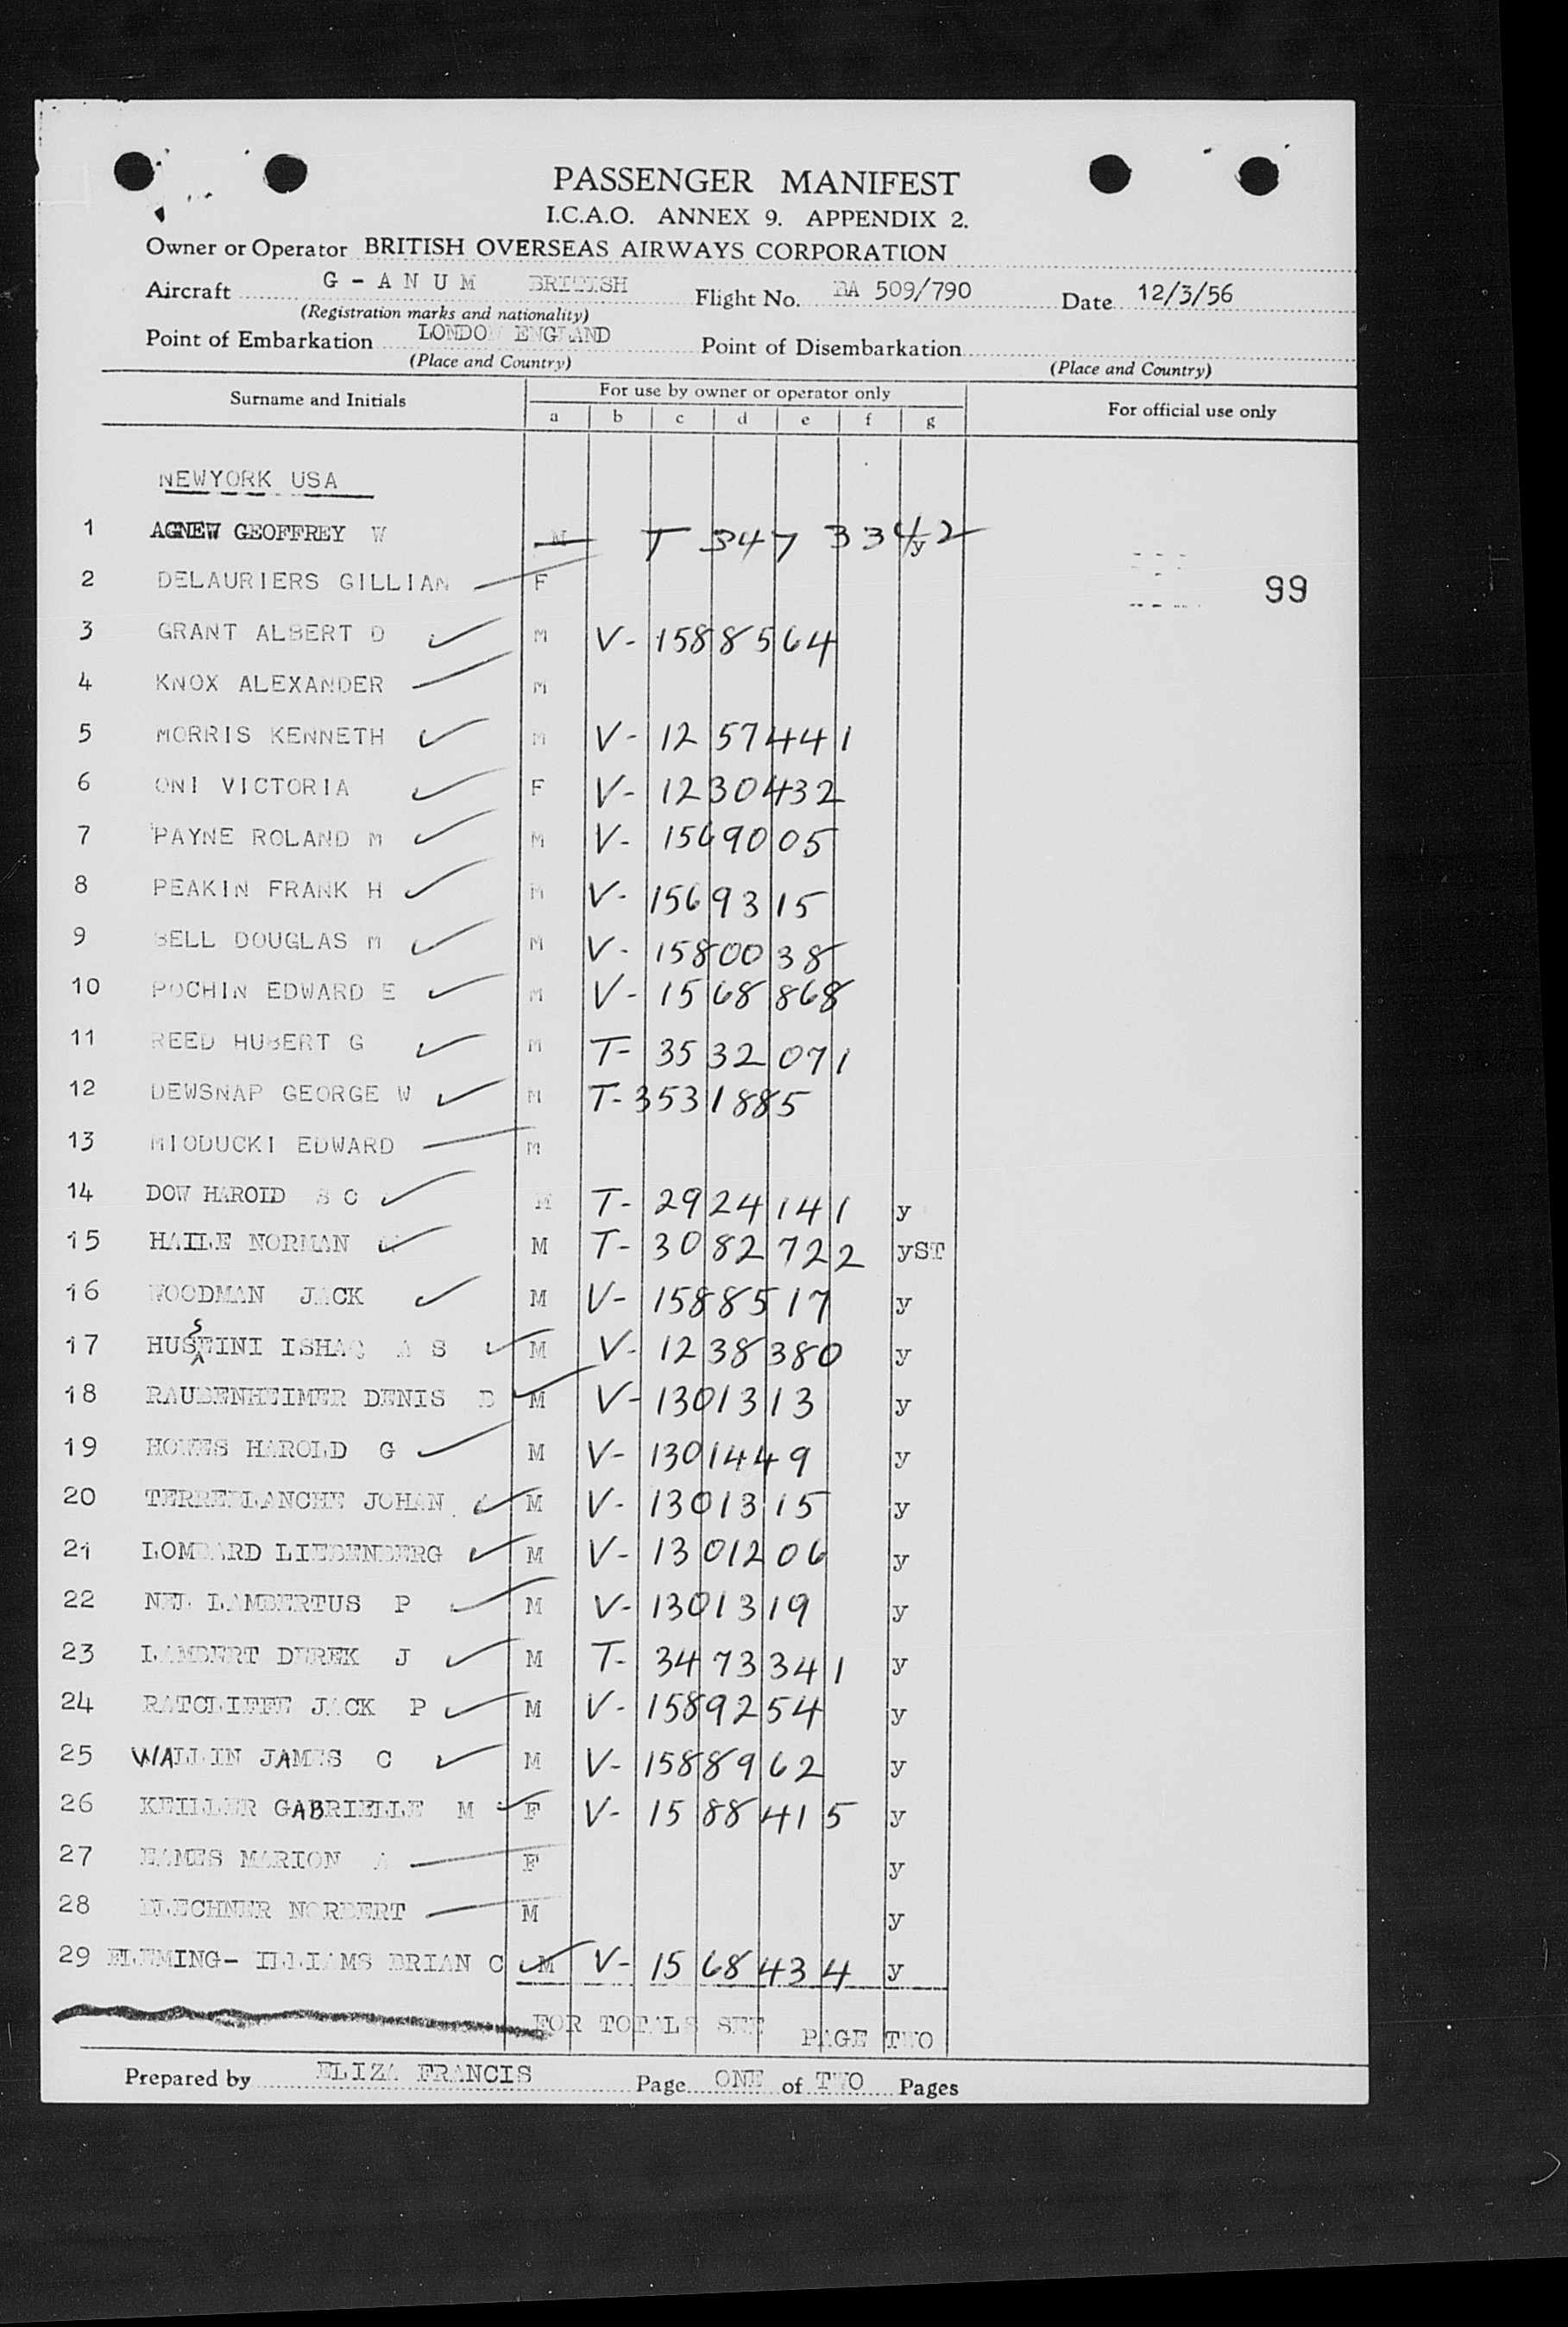 PASSENGER MANIFEST
I.C.A.O. ANNEX 9. APPENDIX 2.
Owner or Operator BRITISH OVERSEAS AIRWAYS CORPORATION
Aircraft G - A N U M BRITISH Flight No. BA 509/790 Date 12/3/56
(Registration marks and nationality)
Point of Embarkation LONDON ENGLAND Point of Disembarkation
(Place and Country) (Place and Country)
Surname and Initials For use by owner or operator only For official use only
a b c d e f g
NEWYORK USA
1 AGNEW GEOFFREY W M T 347 3342 y
2 DELAURIERS GILLIAN F 99
3 GRANT ALBERT D M V- 1588564
4 KNOX ALEXANDER M
5 MORRIS KENNETH M V- 1257441
6 ONI VICTORIA F V- 1230432
7 PAYNE ROLAND M M V- 1569005
8 PEAKIN FRANK H M V- 1569315
9 BELL DOUGLAS M M V- 1580038
10 POCHIN EDWARD E M V- 1568868
11 REED HUBERT G M T- 3532071
12 DEWSNAP GEORGE W M T- 3531885
13 MIODUCKI EDWARD M
14 DOW HAROLD S C M T- 2924141 y
15 HAILE NORMAN M T- 3082722 yST
16 WOODMAN JACK M V- 1588517 y
17 HUSSEINI ISHAQ A S M V- 1238380 y
18 RAUBENHEIMER DENIS B M V- 1301313 y
19 HOWES HAROLD G M V- 1301449 y
20 TERREBLANCHE JOHAN M V- 1301315 y
21 LOMBARD LIEBENBERG M V- 1301206 y
22 NEL LAMBERTUS P M V- 1301319 y
23 LAMBERT DEREK J M T- 3473341 y
24 RATCLIFFE JACK P M V- 1589254 y
25 WALLIN JAMES C M V- 1588962 y
26 KEILLER GABRIELLE M F V- 1588415 y
27 EAMES MARION A F y
28 BLECHNER NORBERT M y
29 FLEMING- ILLIAMS BRIAN C M V- 1568434 y
FOR TOTALS SEE PAGE TWO
Prepared by ELIZA FRANCIS Page ONE of TWO Pages